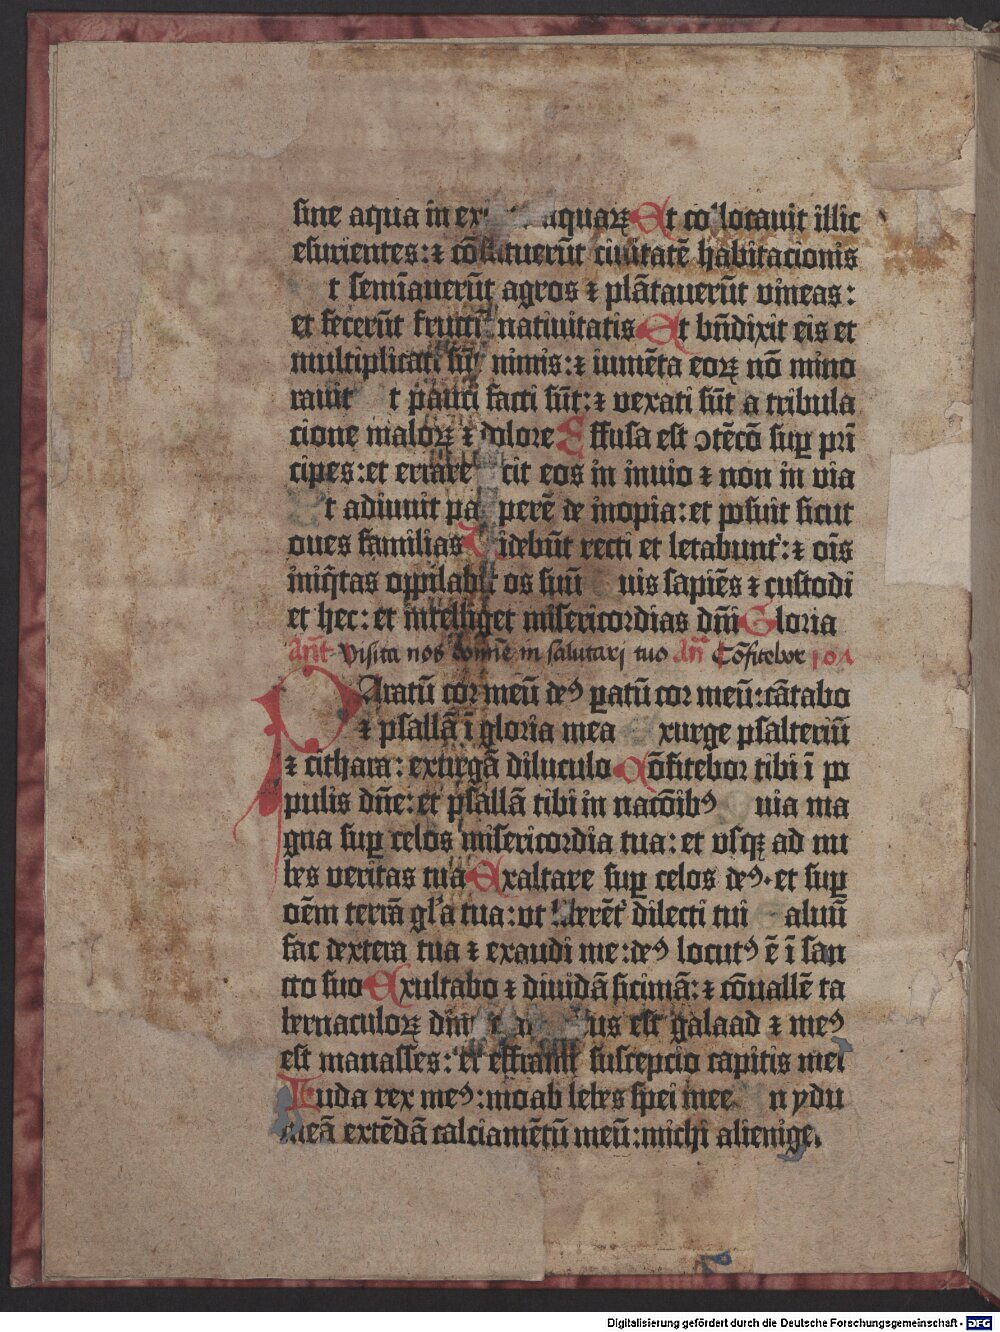 sine aqua in aquaꝝ Et collocauit illic
esurientes: ⁊ cōstituerūt ciuitatē habitacionis
t semīauerūt agros ⁊ plātauerūt vineas:
et fecerūt fructū natiuitatis Et bn̄dixit eis et
multiplicati sūt nimis: ⁊ iumēta eoꝝ nō mino
rauit t pauci facti sūt: ⁊ vexati sūt a tribula
cione maloꝝ ⁊ dolore Effusa est ↄtēcō suꝑ prī
cipes: et errare cit eos in inuio ⁊ non in via
t adiuuit pa perē de inopia: et posuit sicut
oues familias Videbūt recti et letabunt᷑: ⁊ oīs
iniq̄tas oppilabit os suū uis sapiēs ⁊ custodi
et hec: et intelliget misericordias dn̄i Gloria
Ant̄ Visita nos domine in salutari tuo An̄ Cōfitebor
PAratū cor meū deꝰ ꝑatū cor meū: cātabo
⁊ psallā ī gloria mea xurge psalteriū
⁊ cithara: exurgā diluculo Cōfitebor tibi ī po
pulis dn̄e: et psallā tibi in nacōibꝰ uia ma
gna suꝑ celos misericordia tua: et vsqꝫ ad nu
bes veritas tua Exaltare suꝑ celos deꝰ · et suꝑ
oēm terrā gl̄a tua: vt liberēt᷑ dilecti tui aluū
fac dextera tua ⁊ exaudi me: deꝰ locutꝰ ē ī san
cto suo Exultabo ⁊ diuidā sicimā: ⁊ cōuallē ta
bernaculoꝝ dim us est galaad ⁊ meꝰ
est manasses: et effraim suscepcio capitis mei
Iuda rex meꝰ: moab lebes spei mee n ydu
meā extēdā calciamētū meū: michi alienige.
Digitalisierung gefördert durch die Deutsche Forschungsgemeinschaft - DFG